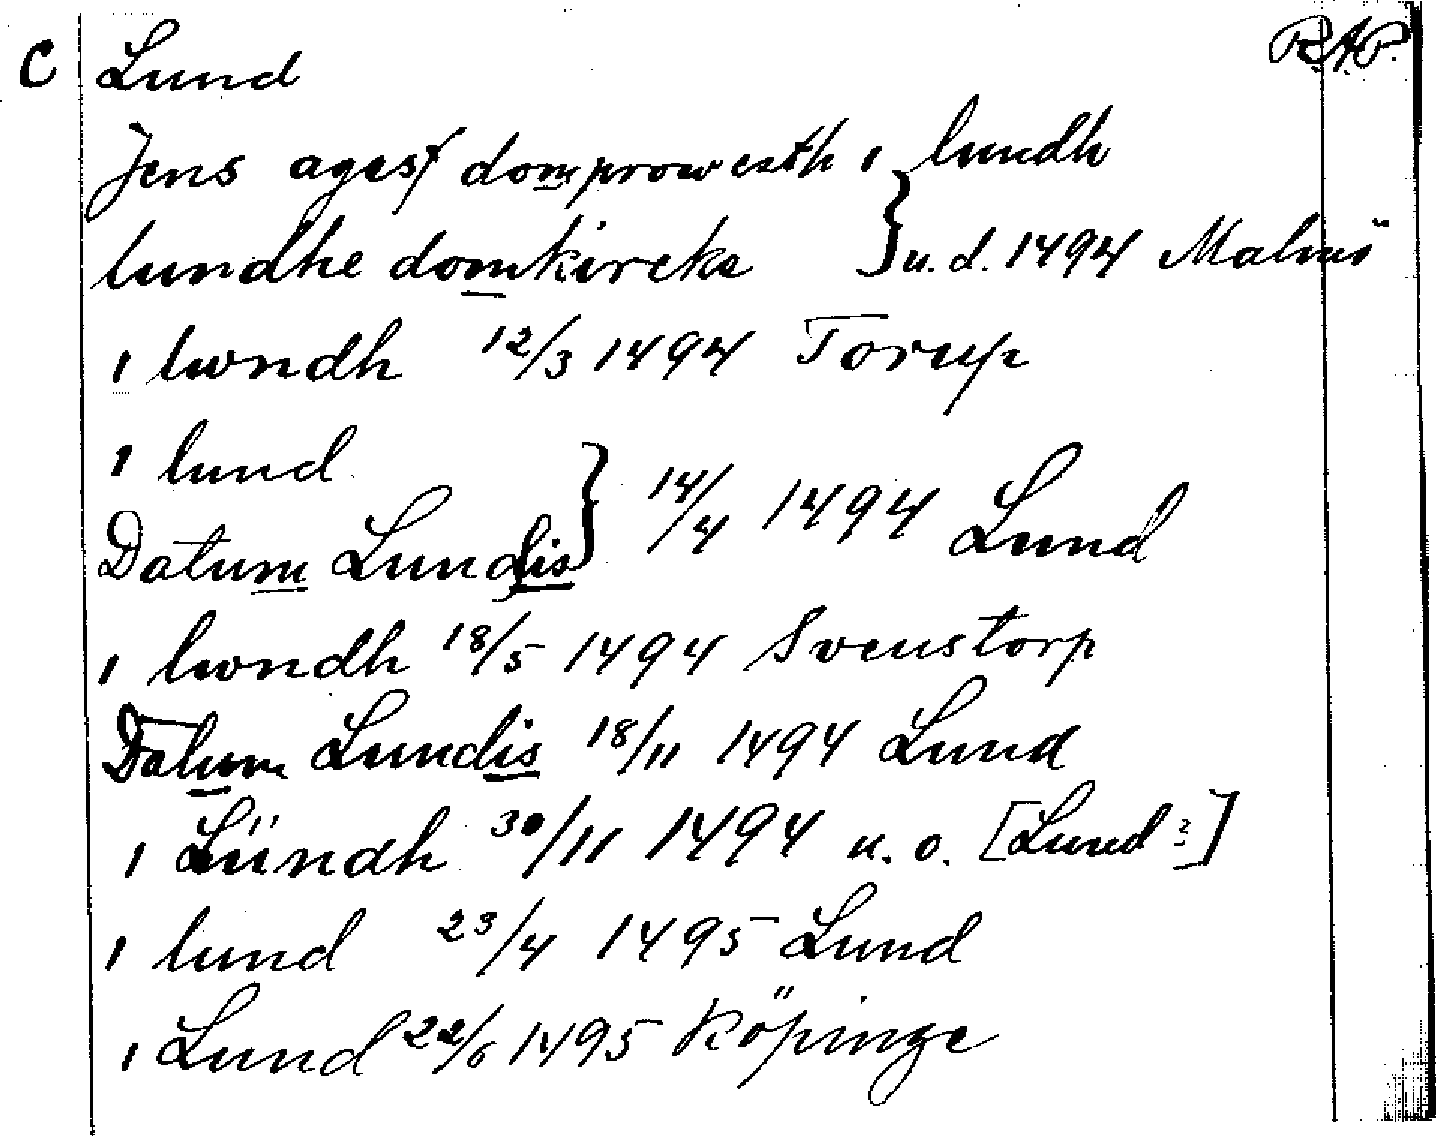 C Lund R.A.P.
Jens agesʃ domprowesth i lundh
lundhe domkircke } u. d. 1494 Malmö
i lwndh 12/3 1494 Torup
i lund
Datum Lundis } 14/4 1494 Lund
i lwndh 18/5 1494 Svenstorp
Datum Lundis 18/11 1494 Lund
i Lündh 30/11 1494 u. o. [Lund?]
i lund 23/4 1495 Lund
i Lund 22/6 1495 Köpinge